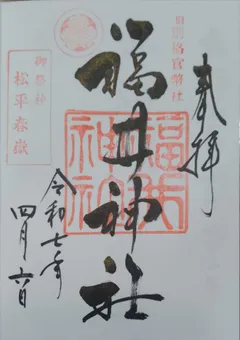 奉拝
旧別格官幣社
福井神社
福井
神社
御祭神
松平春嶽
令和七年
四月六日